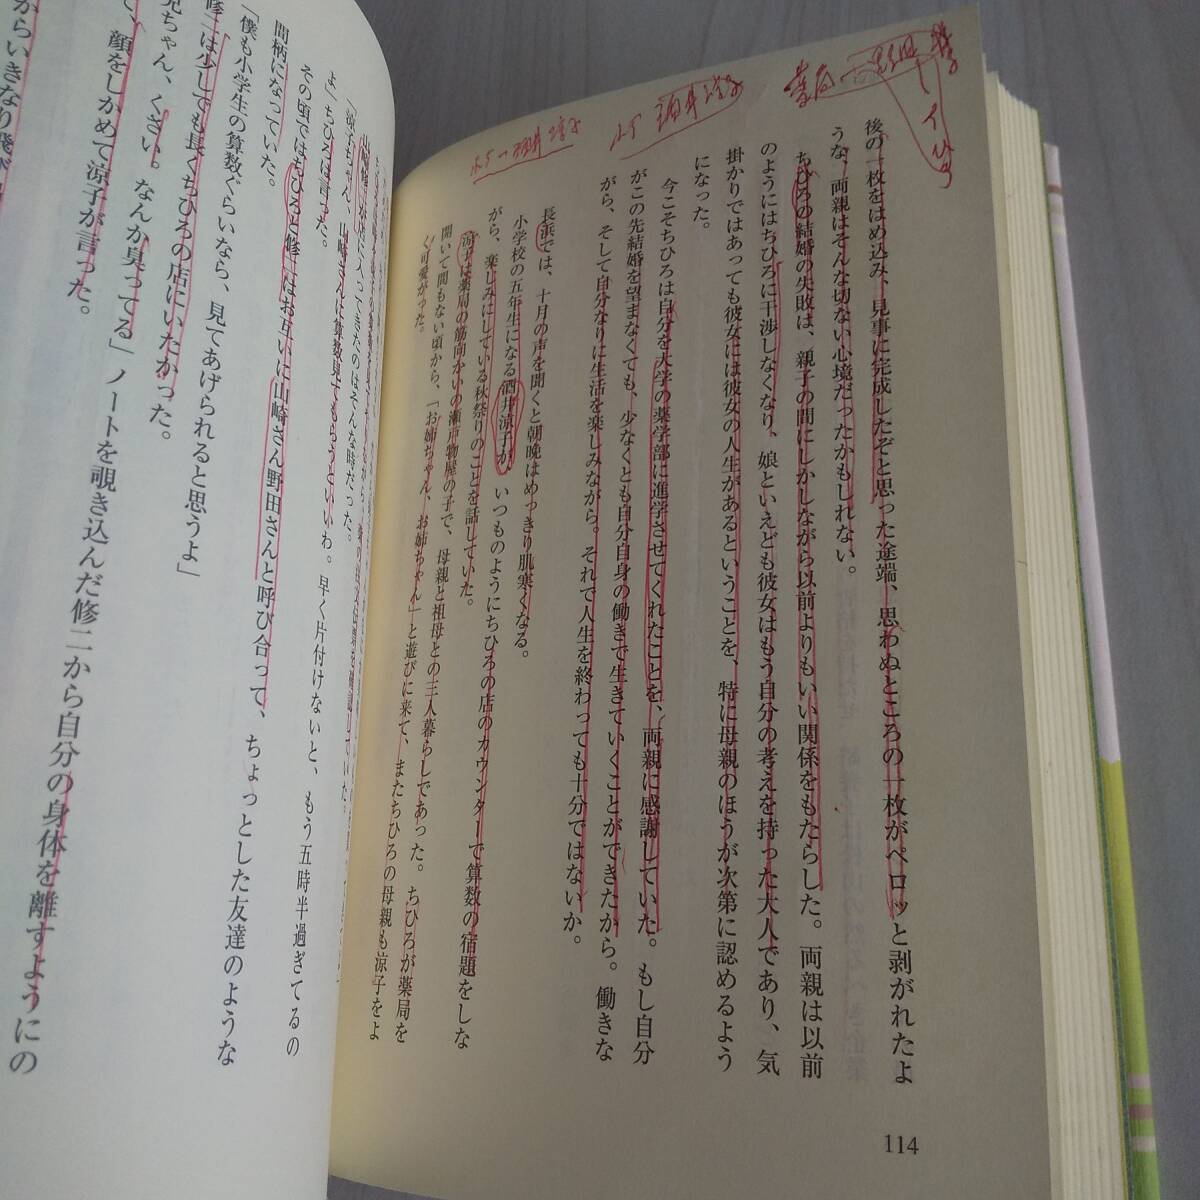 後の一枚をはめ込み、見事に完成したぞと思った途端、思わぬところの一枚がペロッと剥がれたよ
うな、両親はそんな切ない心境だったかもしれない。
ちひろの結婚の失敗は、親子の間にしかしながら以前よりもいい関係をもたらした。両親は以前
のようにはちひろに干渉しなくなり、娘といえども彼女はもう自分の考えを持った大人であり、気
掛かりではあっても彼女には彼女の人生があるということを、特に母親のほうが次第に認めるよう
になった。
今こそちひろは自分を大学の薬学部に進学させてくれたことを、両親に感謝していた。もし自分
がこの先結婚を望まなくても、少なくとも自分自身の働きで生きていくことができたから。働きな
がら、そして自分なりに生活を楽しみながら。それで人生を終わっても十分ではないか。
長浜では、十月の声を聞くと朝晩はめっきり肌寒くなる。
小学校の五年生になる酒井涼子が、いつものようにちひろの店のカウンターで算数の宿題をしな
がら、楽しみにしている秋祭りのことを話していた。
涼子は薬局の筋向かいの瀬戸物屋の子で、母親と祖母との三人暮らしであった。ちひろが薬局を
開いて間もない頃から、「お姉ちゃん、お姉ちゃん」と遊びに来て、またちひろの母親も涼子をよ
く可愛がった。
114
「涼子ちゃん、山崎さんに算数見てもらうといいわ。早く片付けないと、もう五時半過ぎてるの
よ」ちひろは言った。
その頃ではちひろと修二はお互いに山崎さん野田さんと呼び合って、ちょっとした友達のような
間柄になっていた。
「僕も小学生の算数ぐらいなら、見てあげられると思うよ」
修二は少しでも長くちひろの店にいたかった。
兄ちゃん、くさい。なんか臭ってる」ノートを覗き込んだ修二から自分の身体を離すようにの
て、顔をしかめて涼子が言った。
からいきなり飛び